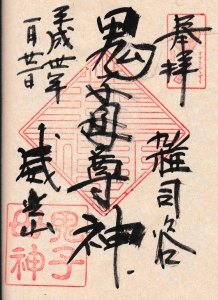 奉拝
雑司谷
鬼子母尊神
平成年
一月
威光山
鬼子
母神